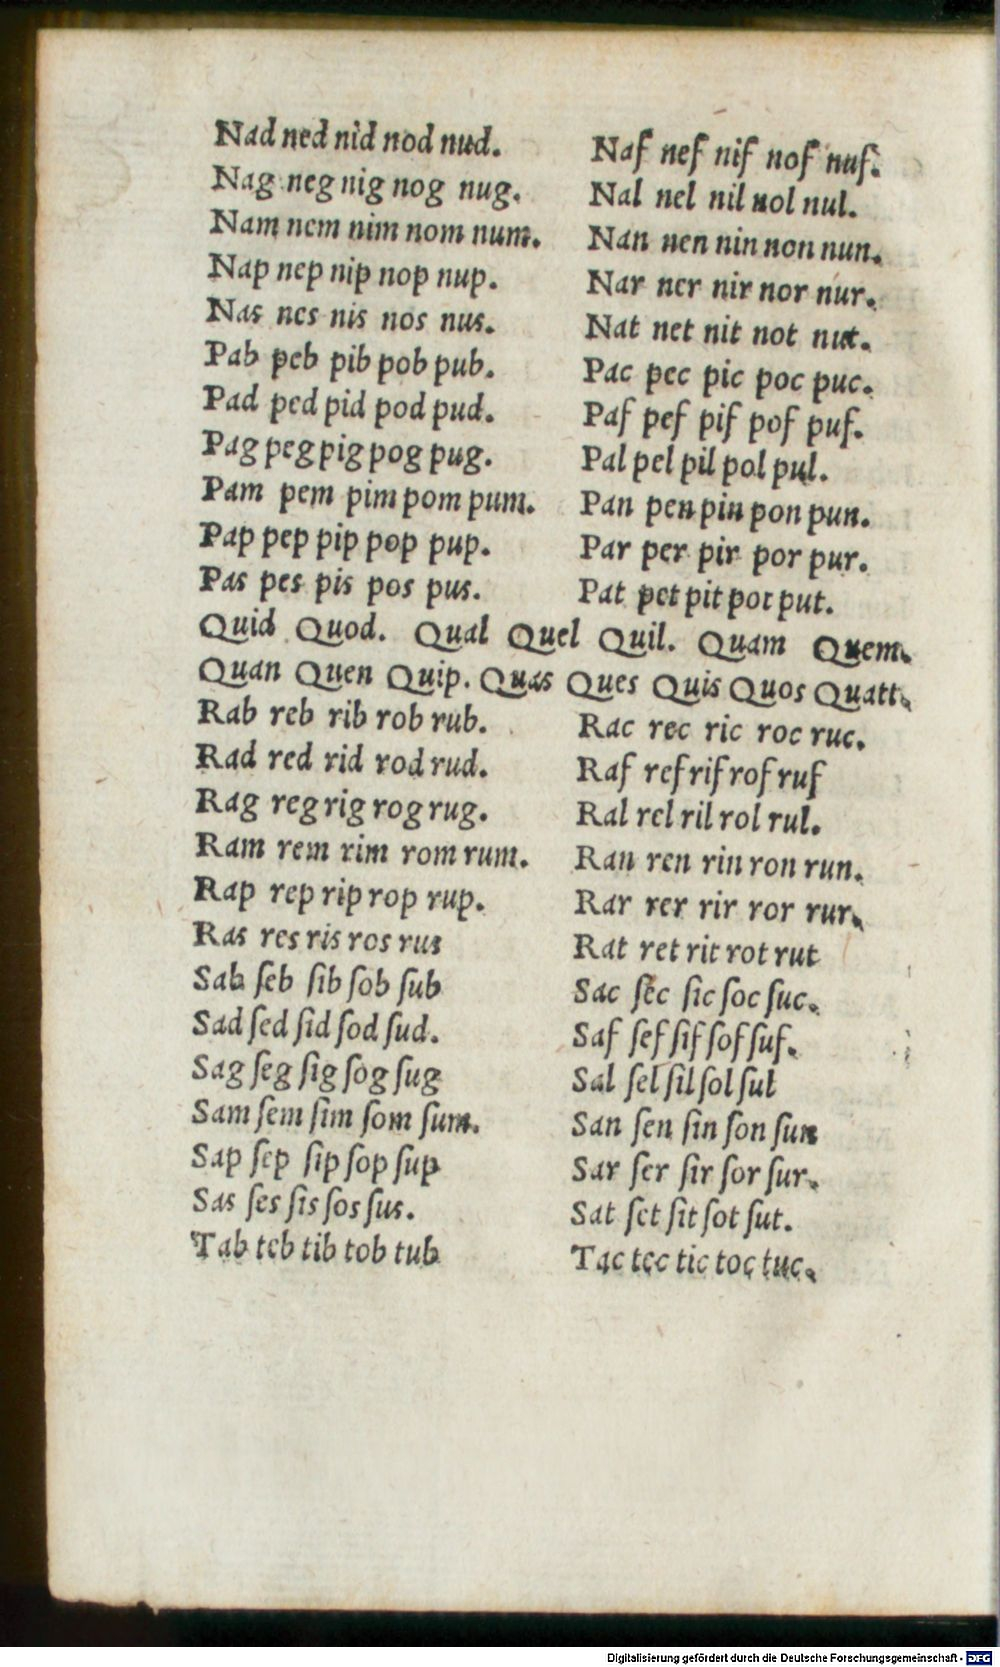 Nad ned nid nod nud. Naf nef nif nof nuf.
Nag neg nig nog nug. Nal nel nil nol nul.
Nam nem nim nom num. Nan nen nin non nun.
Nap nep nip nop nup. Nar ner nir nor nur.
Nas nes nis nos nus. Nat net nit not nut.
Pab peb pib pob pub. Pac pec pic poc puc.
Pad ped pid pod pud. Paf pef pif pof puf.
Pag peg pig pog pug. Pal pel pil pol pul.
Pam pem pim pom pum. Pan pen pin pon pun.
Pap pep pip pop pup. Par per pir por pur.
Pas pes pis pos pus. Pat pet pit pot put.
Quid Quod. Qual Quel Quil. Quam Quem.
Quan Quen Quip. Quas Ques Quis Quos Quatt.
Rab reb rib rob rub. Rac rec ric roc ruc.
Rad red rid rod rud. Raf ref rif rof ruf
Rag reg rig rog rug. Ral rel ril rol rul.
Ram rem rim rom rum. Ran ren rin ron run.
Rap rep rip rop rup. Rar rer rir ror rur.
Ras res ris ros rus Rat ret rit rot rut
Sab ſeb ſib ſob ſub Sac ſec ſic ſoc ſuc.
Sad ſed ſid ſod ſud. Saf ſef ſif ſof ſuf.
Sag ſeg ſig ſog ſug Sal ſel ſil ſol ſul
Sam ſem ſim ſom ſum. San ſen ſin ſon ſun
Sap ſep ſip ſop ſup Sar ſer ſir ſor ſur.
Sas ſes ſis ſos ſus. Sat ſet ſit ſot ſut.
Tab teb tib tob tub Tac tec tic toc tuc.
Digitalisierung gefördert durch die Deutsche Forschungsgemeinschaft - DFG